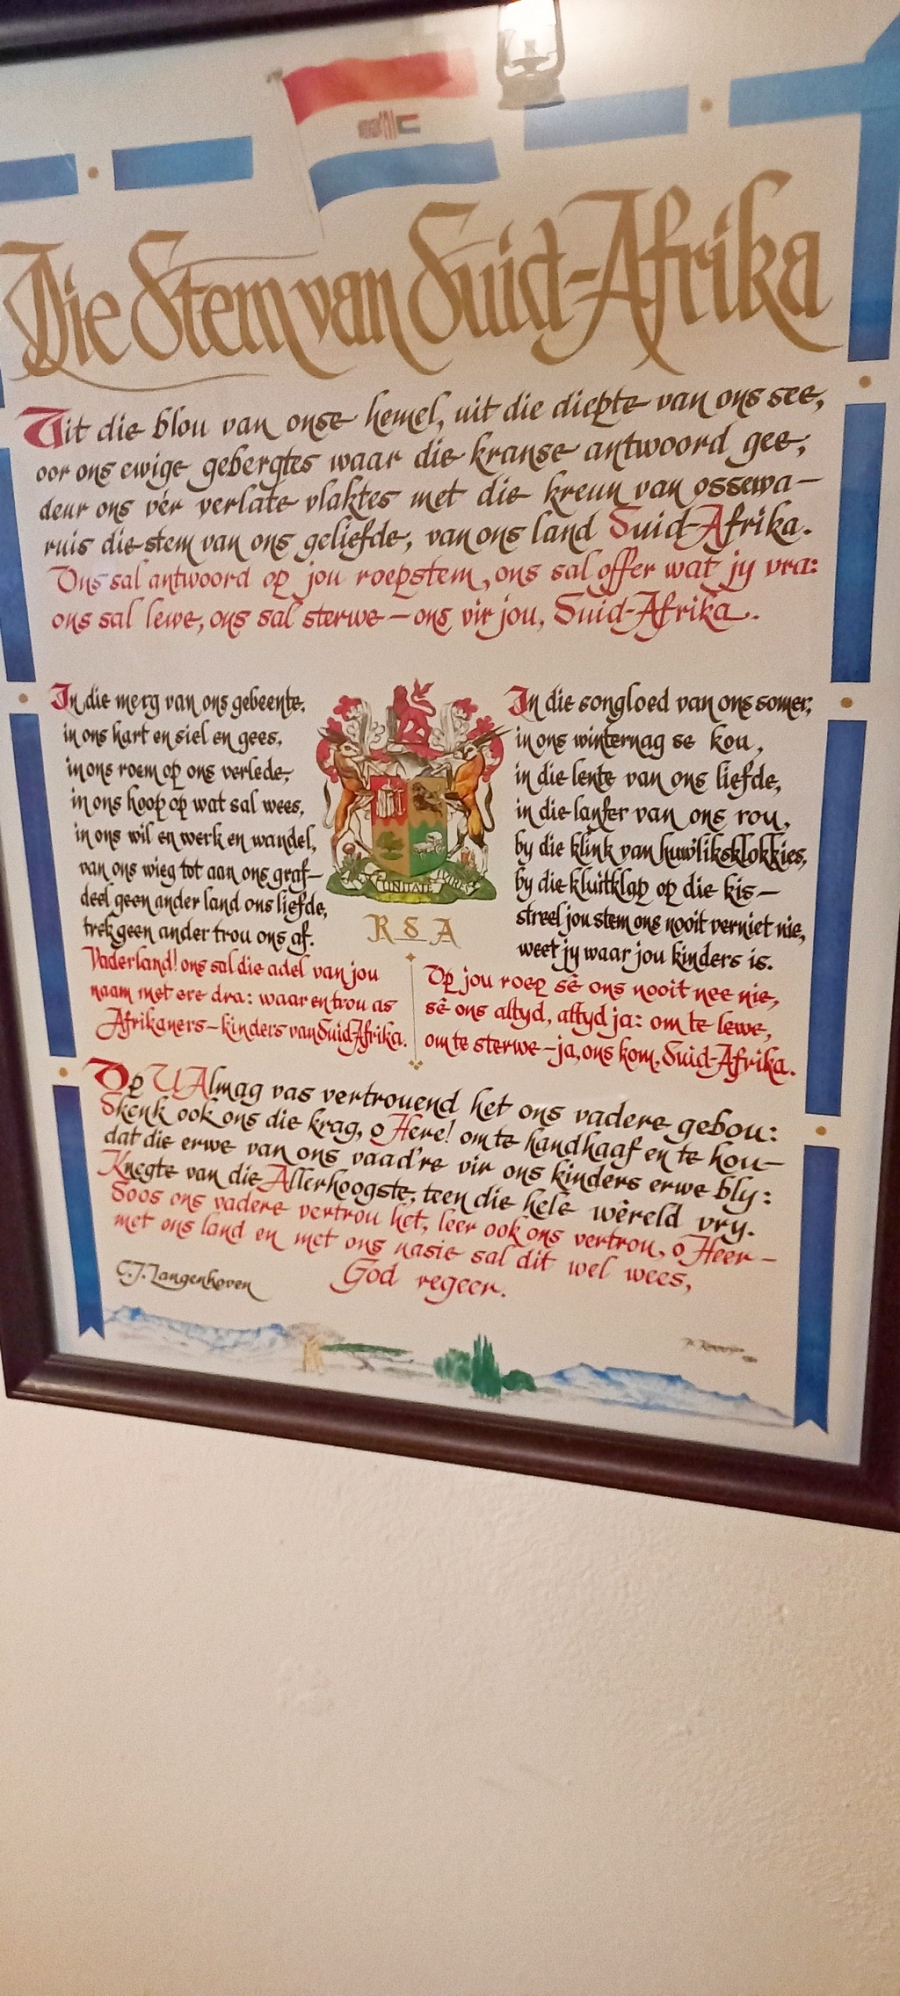 Die Stem van Suid-Afrika
Uit die blou van onse hemel, uit die diepte van ons see,
oor ons ewige gebergtes waar die kranse antwoord gee;
deur ons vér verlate vlaktes met die kreun van ossewa—
ruis die stem van ons geliefde, van ons land Suid-Afrika.
Ons sal antwoord op jou roepstem, ons sal offer wat jy vra:
ons sal lewe, ons sal sterwe — ons vir jou, Suid-Afrika.
In die merg van ons gebeente,
in ons hart en siel en gees,
in ons roem op ons verlede,
in ons hoop op wat sal wees,
in ons wil en werk en wandel,
van ons wieg tot aan ons graf—
deel geen ander land ons liefde,
trek geen ander trou ons af.
Vaderland! ons sal die adel van jou
naam met ere dra: waar en trou as
Afrikaners — kinders van Suid-Afrika.
UNITATE VIRES
R S A
In die songloed van ons somer,
in ons winternag se kou,
in die lente van ons liefde,
in die lanfer van ons rou,
by die klink van huwliksklokkies,
by die kluitklap op die kis—
streel jou stem ons nooit verniet nie,
weet jy waar jou kinders is.
Op jou roep sê ons nooit nee nie,
sê ons altyd, altyd ja: om te lewe,
om te sterwe — ja, ons kom, Suid-Afrika.
Op U Almag vas vertrouend het ons vadere gebou:
Skenk ook ons die krag, o Here! om te handhaaf en te hou—
dat die erwe van ons vaad're vir ons kinders erwe bly:
Knegte van die Allerhoogste, teen die hele wêreld vry.
Soos ons vadere vertrou het, leer ook ons vertrou, o Heer—
met ons land en met ons nasie sal dit wel wees,
God regeer.
C.J. Langenhoven